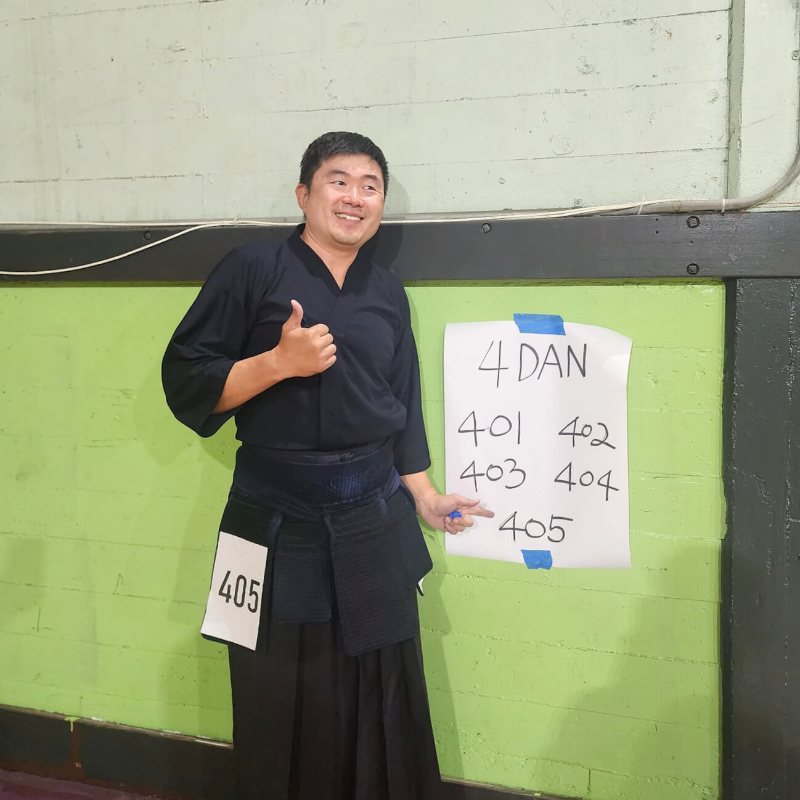 4 DAN
401 402
403 404
405
405